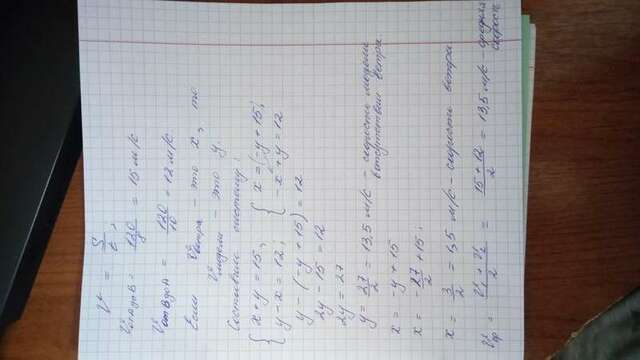 V = S/t;
V от А до В = 120/8 = 15 м/с
V от В до А = 120/10 = 12 м/с
Если V ветра - это x, то
V модели - это y.
Составим систему:
{ x + y = 15; { x = -y + 15;
{ y - x = 12; { -x + y = 12
y - (-y + 15) = 12
2y - 15 = 12
2y = 27
y = 27/2 = 13,5 м/с - скорость модели
в отсутствии ветра
x = -y + 15
x = -27/2 + 15;
x = 3/2 = 1,5 м/с - скорость ветра.
Vср = V1 + V2 / 2 = 15 + 12 / 2 = 13,5 м/с - средняя
скорость